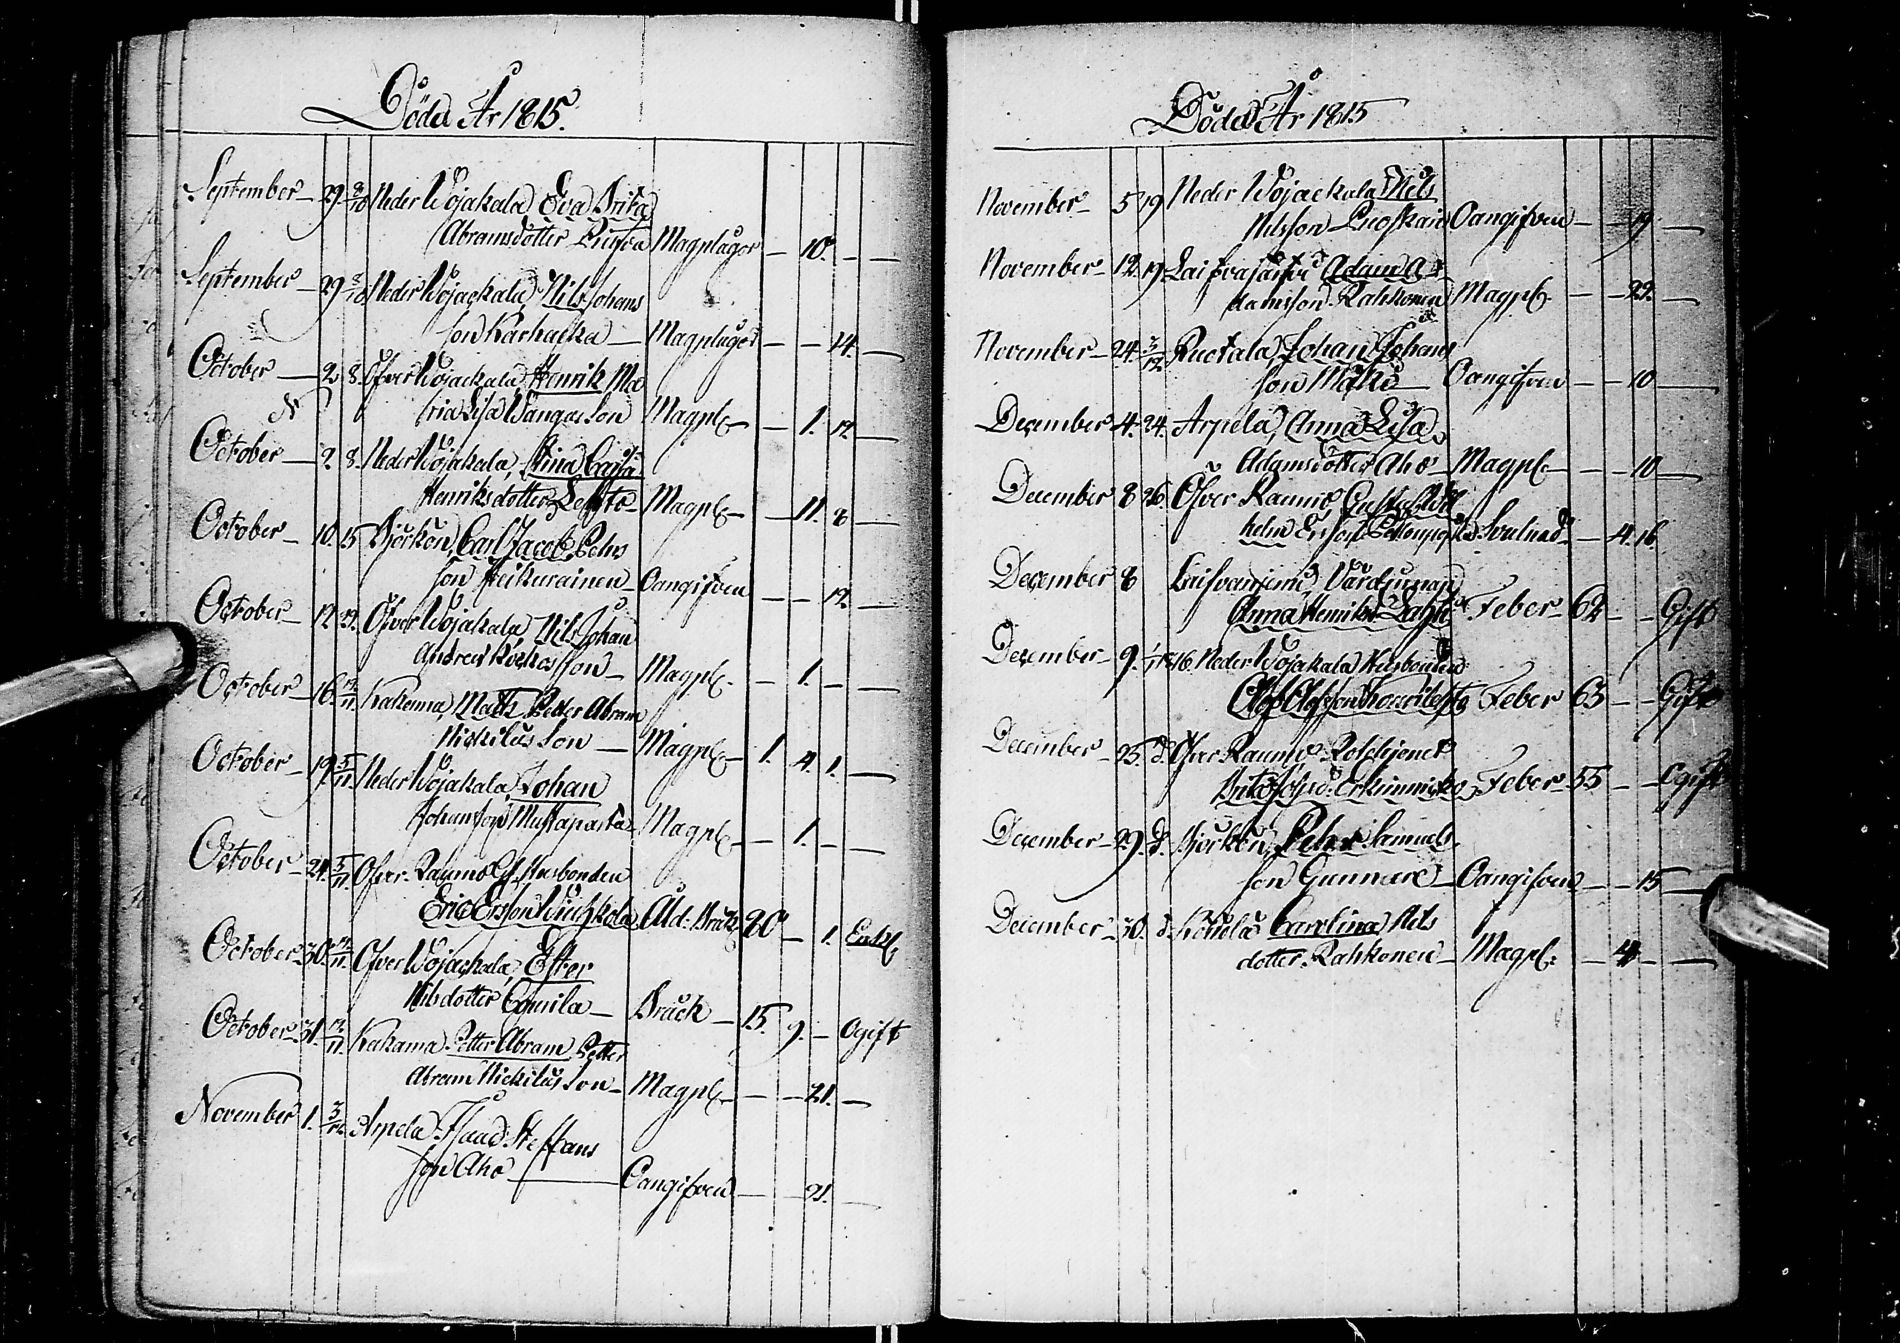 Döda År 1815.
September 29 8/10 Neder Wojakala Eva Brita
Abramsdotter Magplågor 10.
September 29 8/10 Neder Wojackala, Nils Johans
son Karhacka Magplågor 14.
October 2 8. Öfver Wojackala, Henrik Ma
ria Lisa Wangas Son Magpl. 1. 12.
October 2 8. Neder Wojakala, Stina Cajsa
Henriksdotter Magpl. 11. 8
October 10. 15 Björkön, Carl Jacob Pehrs
son Heikurainen Oangifven 12.
October 12 22. Öfver Wojakala, Nils Johan
Andreas Son Magpl. 1.
October 16. 12/11 Kakama, Matts Petter Abram
Nickilus Son Magpl. 1. 4. 1.
October 19 5/11 Neder Wojakala, Johan
Johansson Mustaparta Magpl. 1.
October 24. 5/11 Öfver Raumo Gl. Husbonden
Eric Ersson Åld. Bräck 80 1. Enkl.
October 30. 12/11 Öfver Wojackala, Ester
Nilsdotter Comila Bråck 15. 9. Ogift
October 31. 12/11 Kakama Petter Abram Petter
Abram Nickilus Son Magpl. 21.
November 1. 3/12 Arpela Isaac Steffans
son Aho Oangifven 21.
Döda År 1815
November 5 19 Neder Wojackala Nils
Nilsson Oangifven 19
November 12. 19 Laivajärvi Adam A-
damsson Rahkonen Magpl. 22.
November 24. 3/12 Ruotala, Johan Johans
son Mäki Oangifven 10
December 4. 24. Arpela, Anna Lisa
Adamsdotter Aho Magpl. 10
December 8 26. Öfver Raumo, Gustaf Wil
helm Ersson Svulnad 4. 16
December 8 Laifvanjemi, Värdinnan
Anna Henriksd. Feber 62 Gift
December 9. 1/1 1816 Neder Wojakala Husbonden
Olof Olofsson Feber 63 Gift
December 25. d. Öfver Raumo Rotehjonet
Brita Johsd. Erkinmikko Feber 55 Ogift
December 29. d. Björkön, Pehr Samuels
son Gunnare Oangifven 15
December 30. d. Könölä Carolina Nils
dotter Rahkonen Magpl. 4